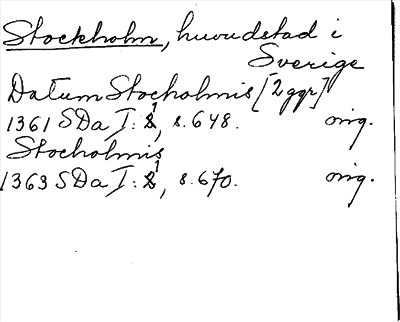 Stockholm, huvudstad i
Sverige
Datum Stocholmis [2 ggr]
1361 SDa I: 1, s. 648. orig.
Stocholmis
1363 SDa I: 1, s. 670. orig.